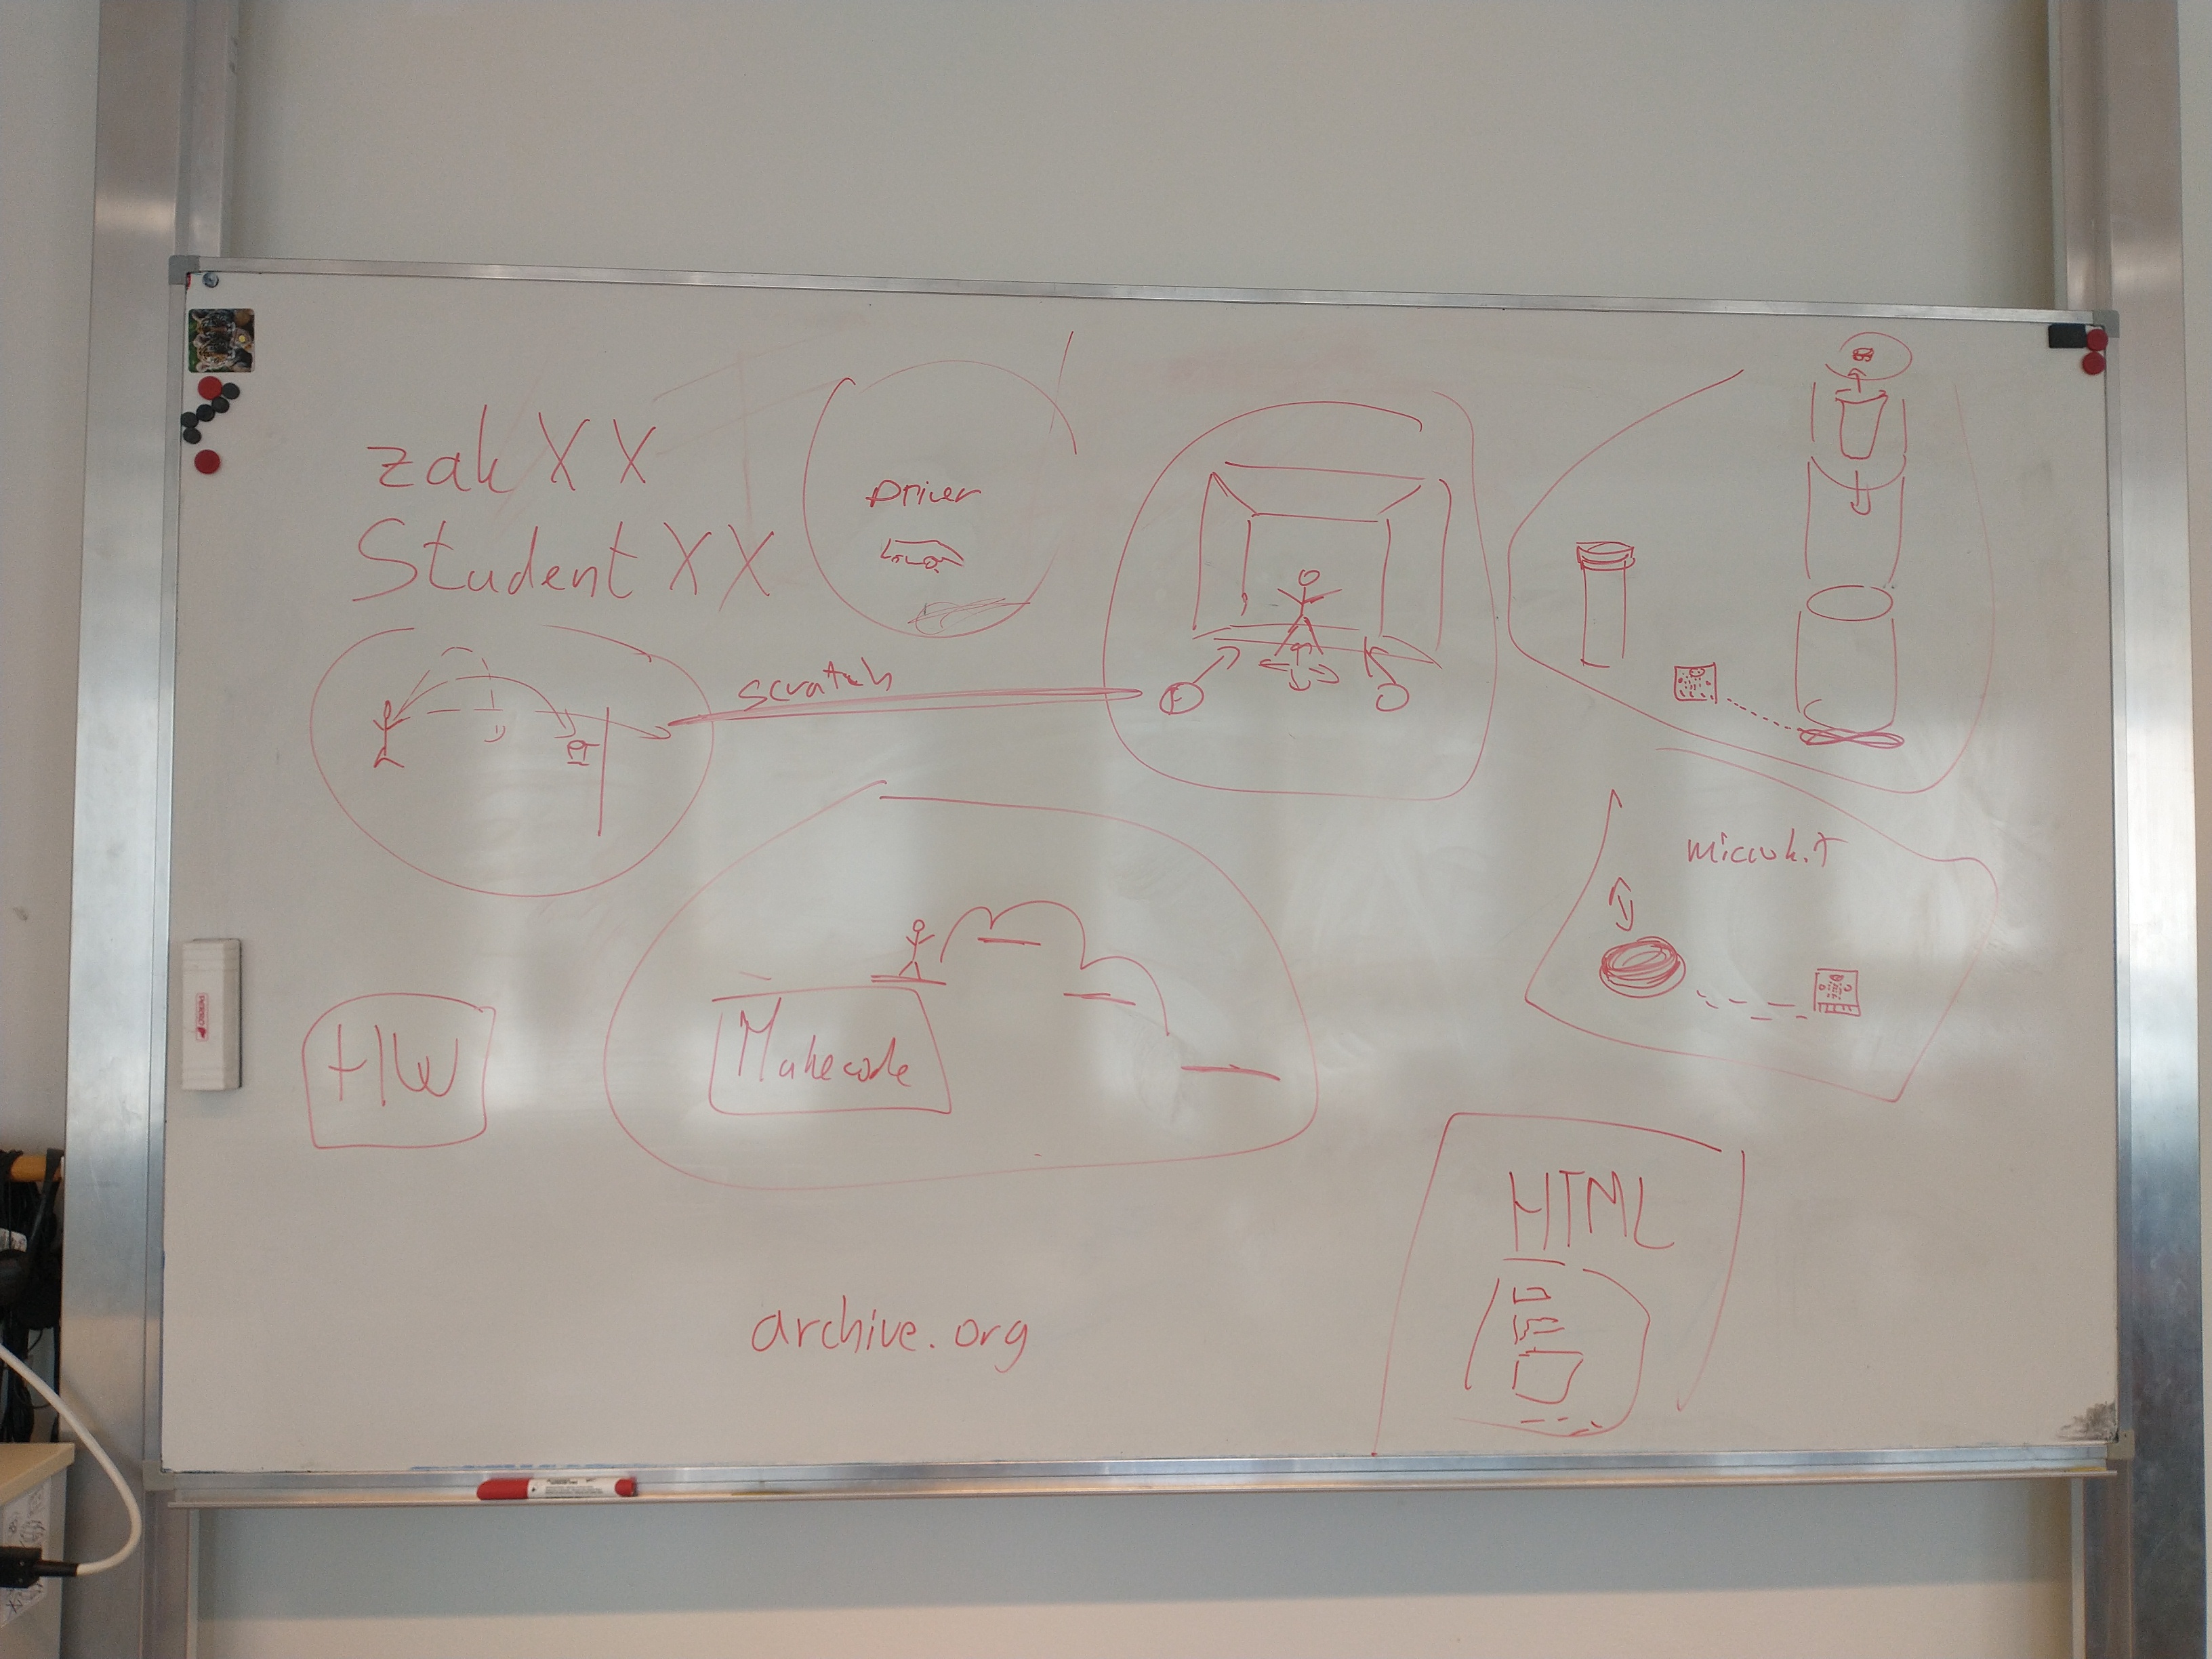 zak XX
Student XX
Driver
scratch
microbit
Makecode
HW
HTML
archive.org